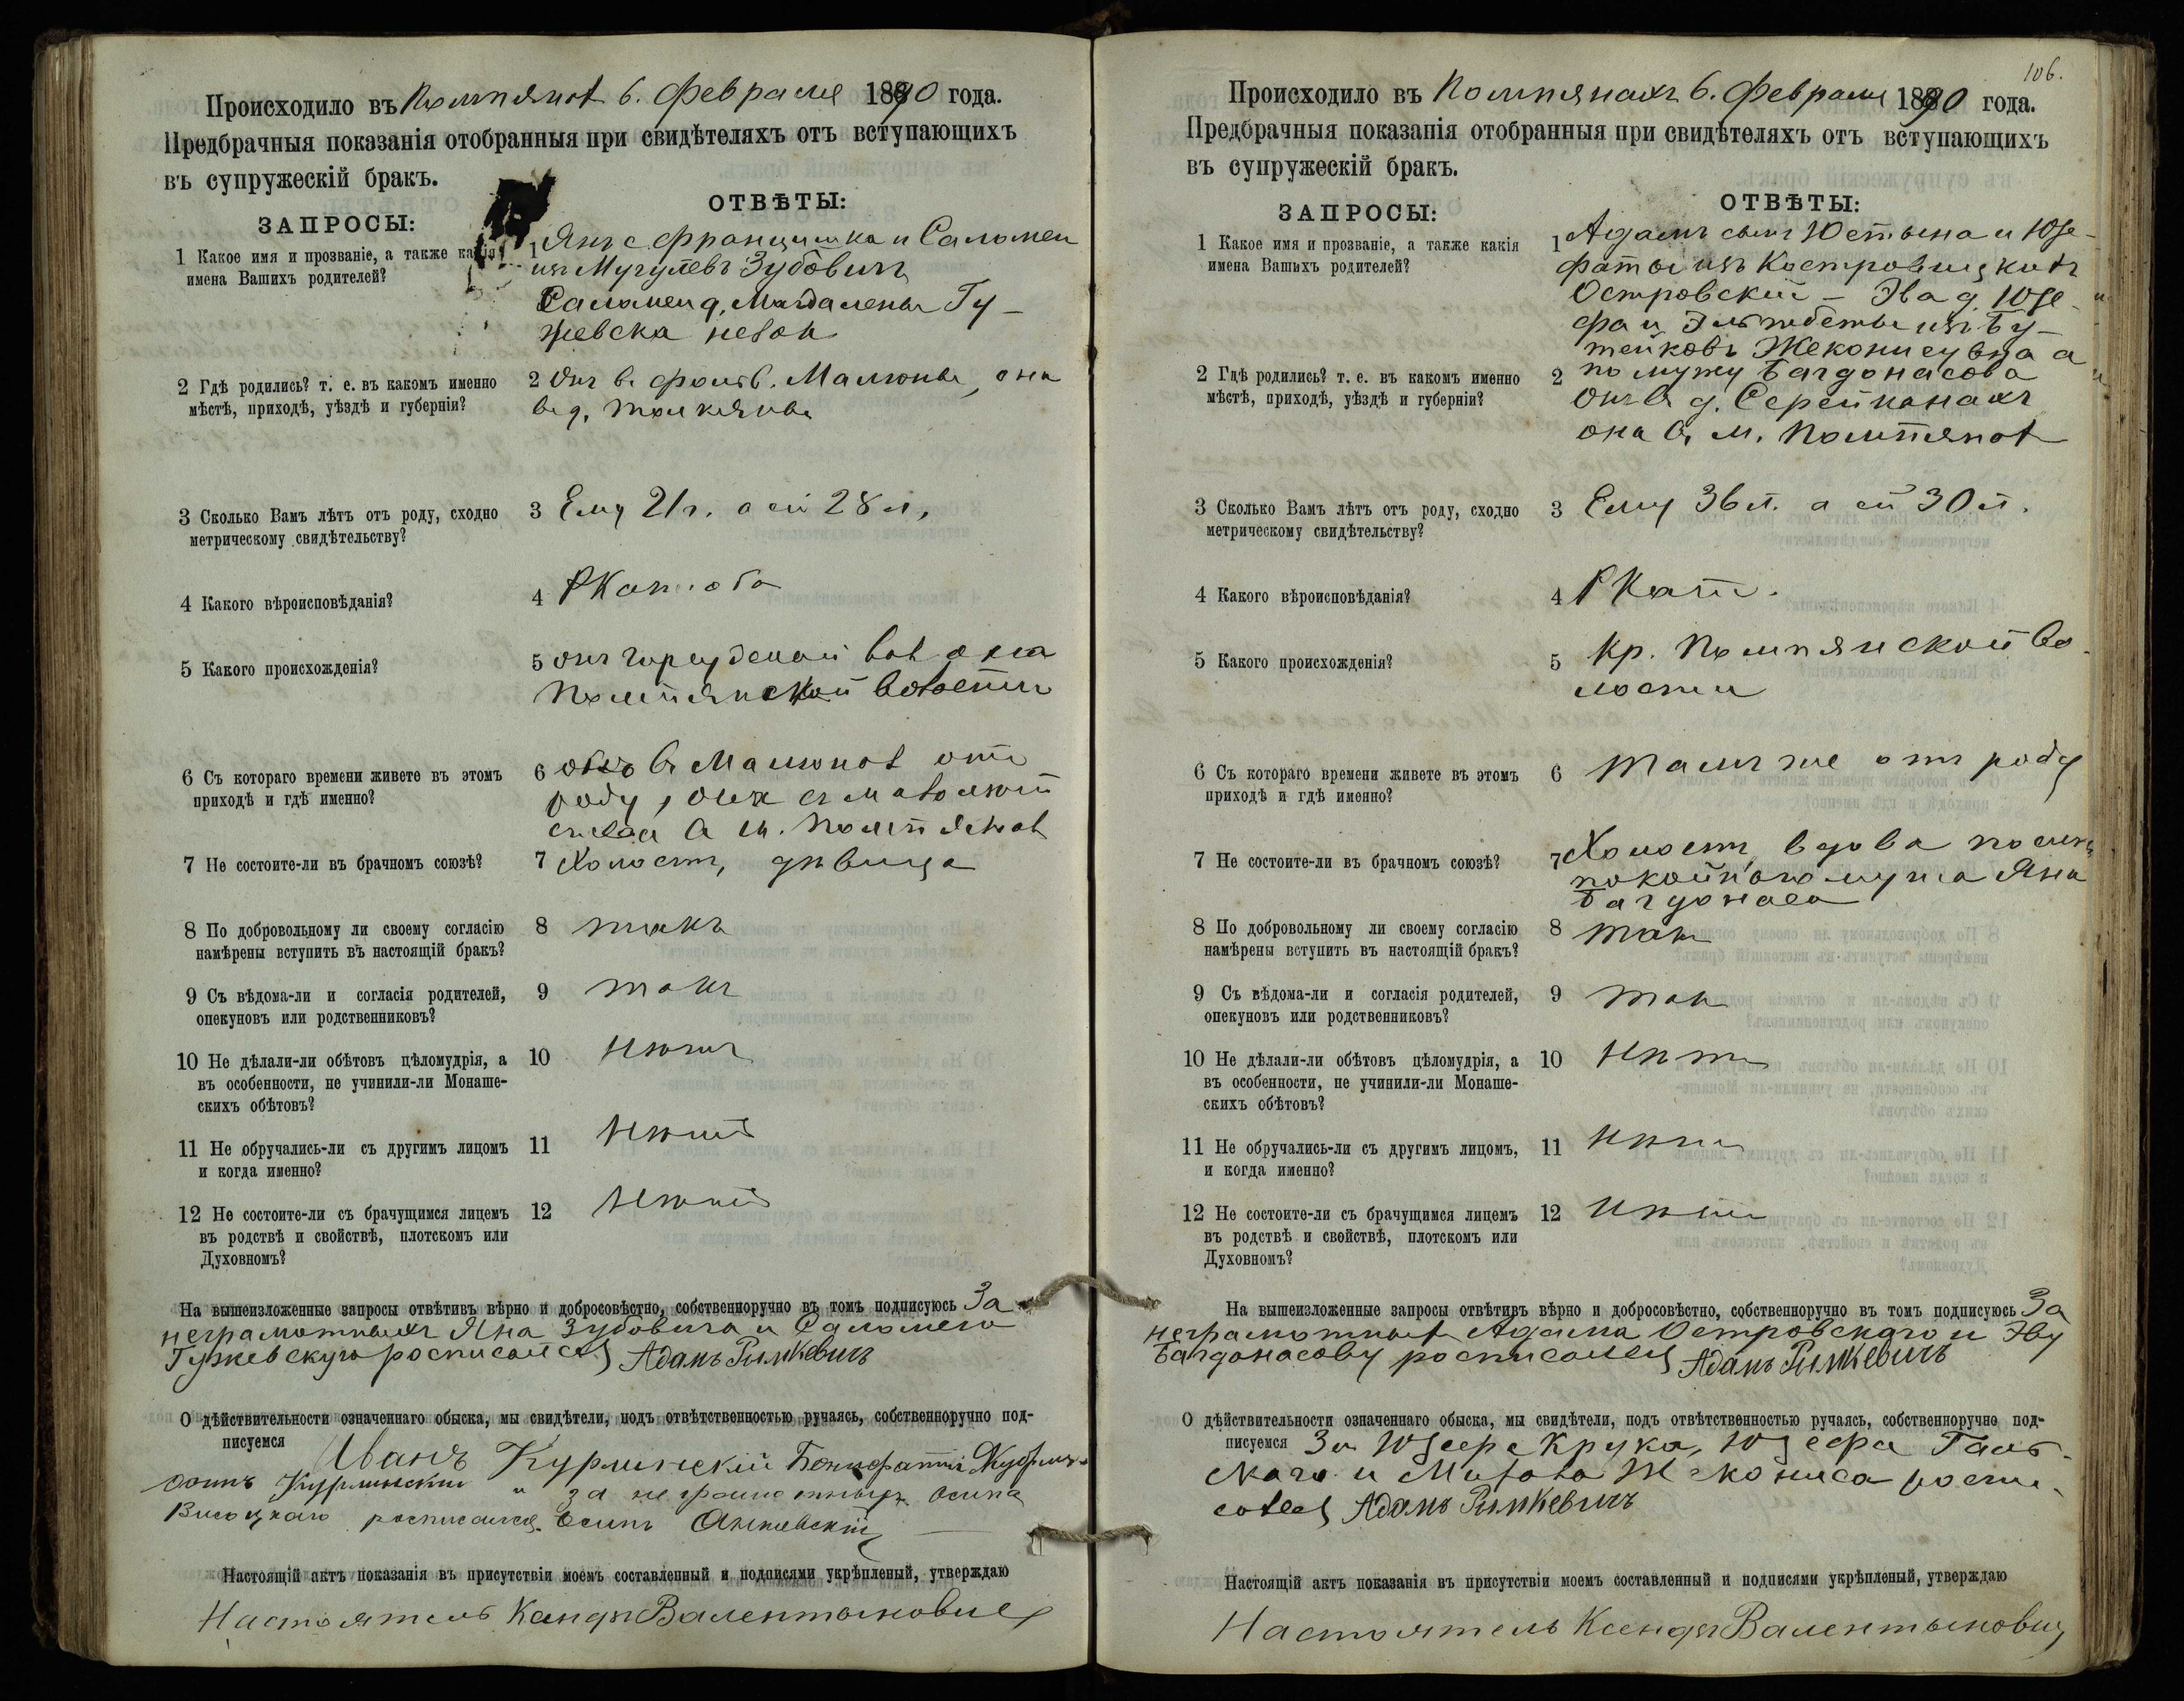 Происходило въ Помпянах 6. Февраля 1890 года.
Предбрачныя показанія отобранныя при свидѣтеляхъ отъ вступающихъ
въ супружескій бракъ.
ЗАПРОСЫ:
ОТВѢТЫ:
1 Какое имя и прозваніе, а также какія
имена Вашихъ родителей?
1 Янъ с Францишка и Саломеи
изъ Зубовичъ
Саломея д. Магдалены Гу-
жевска
2 Гдѣ родились? т. е. въ какомъ именно
мѣстѣ, приходѣ, уѣздѣ и губерніи?
2 Онъ въ фольв. Малюны, она
въ д.
3 Сколько Вамъ лѣтъ отъ роду, сходно
метрическому свидѣтельству?
3 Ему 21 г. а ей 28 л.
4 Какого вѣроисповѣданія?
4 РКат. оба
5 Какого происхожденія?
5 Онъ вол. а она
Помпянской волости
6 Съ котораго времени живете въ этомъ
приходѣ и гдѣ именно?
6 въ Малюнах отъ
роду, она съ
въ м. Помпянах
7 Не состоите-ли въ брачномъ союзѣ?
7 Холостъ, дѣвица
8 По добровольному ли своему согласію
намѣрены вступить въ настоящій бракъ?
8 такъ
9 Съ вѣдома-ли и согласія родителей,
опекуновъ или родственниковъ?
9 такъ
10 Не дѣлали-ли обѣтовъ цѣломудрія, а
въ особенности, не учинили-ли Монаше-
скихъ обѣтовъ?
10 нѣтъ
11 Не обручались-ли съ другимъ лицомъ
и когда именно?
11 нѣтъ
12 Не состоите-ли съ брачущимся лицемъ
въ родствѣ и свойствѣ, плотскомъ или
Духовномъ?
12 нѣтъ
На вышеизложенные запросы отвѣтивъ вѣрно и добросовѣстно, собственноручно въ томъ подписуюсь За
неграмотныхъ Яна Зубовича и Саломею
Гужевскую росписался Адамъ Римкевичъ
О дѣйствительности означеннаго обыска, мы свидѣтели, подъ отвѣтственностью ручаясь, собственноручно под-
писуемся Иванъ Курминскій
Курминскій и за неграмотныхъ Осипа
Высоцкаго росписался Осипъ
Настоящій актъ показанія въ присутствіи моемъ составленный и подписями укрѣпленый, утверждаю
Настоятель Ксендзъ Валентыновичъ
106.
Происходило въ Помпянахъ 6. Февраля 1890 года.
Предбрачныя показанія отобранныя при свидѣтеляхъ отъ вступающихъ
въ супружескій бракъ.
ЗАПРОСЫ:
ОТВѢТЫ:
1 Какое имя и прозваніе, а также какія
имена Вашихъ родителей?
1 Адамъ сынъ Юстына и Юзе-
фаты изъ Костровицкихъ
Островскій – Эва д. Юзе-
фа и Эльжбеты изъ Бу-
тейковъ а
по мужу Багдонасова
2 Гдѣ родились? т. е. въ какомъ именно
мѣстѣ, приходѣ, уѣздѣ и губерніи?
2 Онъ въ д. Серейканахъ
она въ м. Помпянах
3 Сколько Вамъ лѣтъ отъ роду, сходно
метрическому свидѣтельству?
3 Ему 36 л. а ей 30 л.
4 Какого вѣроисповѣданія?
4 РКат.
5 Какого происхожденія?
5 Кр. Помпянской во-
лости
6 Съ котораго времени живете въ этомъ
приходѣ и гдѣ именно?
6 Тамъ же отъ роду
7 Не состоите-ли въ брачномъ союзѣ?
7 Холостъ, вдова послѣ
покойнаго мужа Яна
Багдонаса
8 По добровольному ли своему согласію
намѣрены вступить въ настоящій бракъ?
8 такъ
9 Съ вѣдома-ли и согласія родителей,
опекуновъ или родственниковъ?
9 такъ
10 Не дѣлали-ли обѣтовъ цѣломудрія, а
въ особенности, не учинили-ли Монаше-
скихъ обѣтовъ?
10 нѣтъ
11 Не обручались-ли съ другимъ лицомъ,
и когда именно?
11 нѣтъ
12 Не состоите-ли съ брачущимся лицемъ
въ родствѣ и свойствѣ, плотскомъ или
Духовномъ?
12 нѣтъ
На вышеизложенные запросы отвѣтивъ вѣрно и добросовѣстно, собственноручно въ томъ подписуюсь За
неграмотных Адама Островскаго и Эву
Багдонасову росписался Адамъ Римкевичъ
О дѣйствительности означеннаго обыска, мы свидѣтели, подъ отвѣтственностью ручаясь, собственноручно под-
писуемся За Юзефа Крука, Юзефа Галь-
скаго и роспи-
сался Адамъ Римкевичъ
Настоящій актъ показанія въ присутствіи моемъ составленный и подписями укрѣпленый, утверждаю
Настоятель Ксендзъ Валентыновичъ